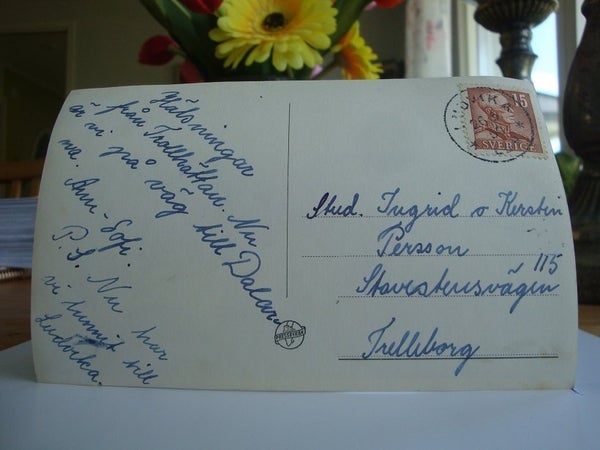 Hälsningar
från Trollhättan. Nu
är vi på väg till Dalar
na. Ann-Sofi.
P.S. Nu har
vi hunnit till
Ludvika.
Stud. Ingrid o Kerstin
Persson
Stavstensvägen 115
Trelleborg
LUDVIKA
15
SVERIGE
PRESSBYRÅN